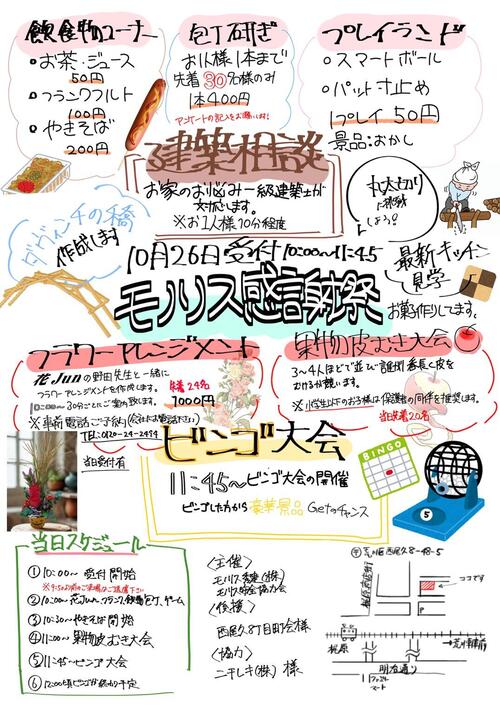 飲食物コーナー
・お茶・ジュース
50円
・フランクフルト
100円
・やきそば
200円
包丁研ぎ
お1人様1本まで
先着30名様のみ
1本400円
アンケートの記入をお願いします!
プレイランド
・スマートボール
・パット寸止め
1プレイ50円
景品:おかし
建築相談
お家のお悩み一級建築士が
対応します。
※お1人様10分程度
丸太切り
に挑戦
しよう!
ダ・ヴィンチの橋
作成します
10月26日受付10:00~11:45
モノリス感謝祭
最新キッチン
見学♪
お菓子作りしてます。
フラワーアレンジメント
花Junの野田先生と一緒に
フラワーアレンジメントを作成します。
10:00~30分ごとにご案内致します。
先着24名
1000円
※事前電話ご予約(会社にお電話下さい)
TEL:0120-24-2424
当日受付有
果物の皮むき大会
3~4人ほどで並び一番長く皮を
むける方が競います。
※小学生以下のお子様は保護者の同伴を推奨します。
当日先着20名
ビンゴ大会
11:45~ビンゴ大会の開催
ビンゴした方から豪華景品Getのチャンス
BINGO
5
当日スケジュール
①10:00~受付開始
②10:00~花Jun、フランク、飲物、包丁、ゲーム
③10:30~やきそば開始
④11:00~果物皮むき大会
⑤11:45~ビンゴ大会
⑥12:00頃ビンゴが終わり予定
<主催>
モノリス秀建(株)
モノリス秀建協力会
<後援>
西尾久8丁目町会様
<協力>
ニチレキ(株)様
〒荒川区西尾久8-48-5
ココです
P
梶原
明治通り
ファミリー
マート